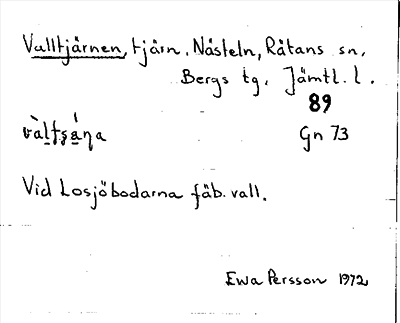 Valltjärnen, tjärn. Nästeln, Rätans sn,
Bergs tg. Jämtl. l.
89
Gn 73
Vid Losjöbodarna fäb. vall.
Ewa Persson 1972